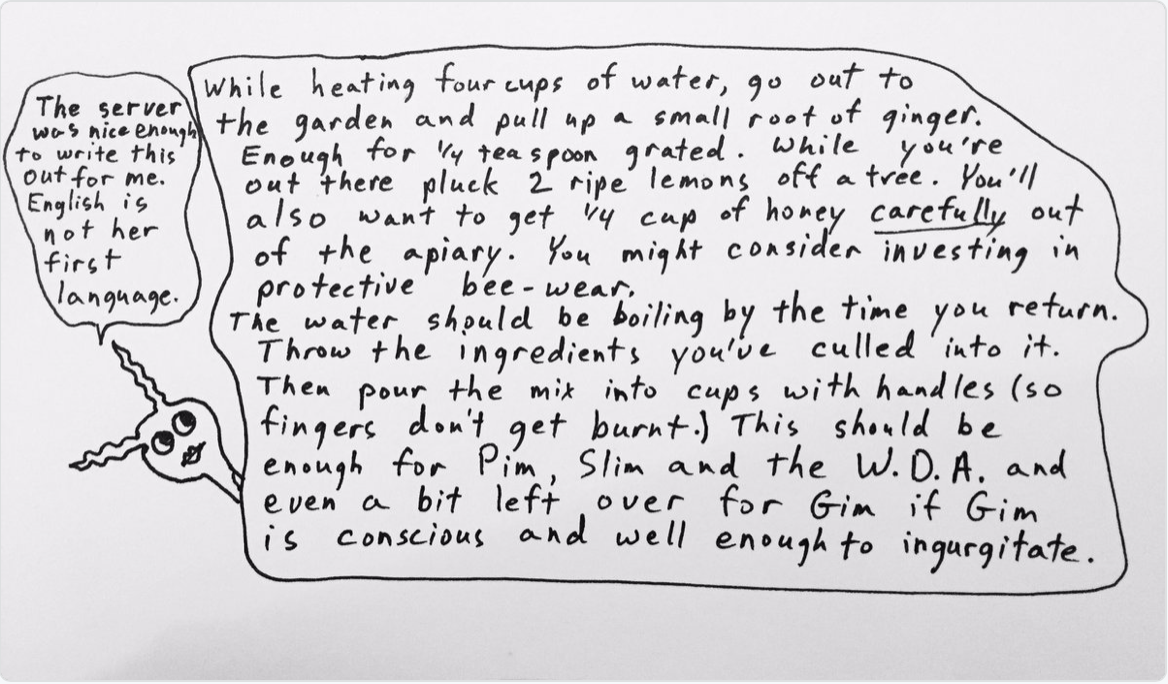 The server
was nice enough
to write this
out for me.
English is
not her
first
language.
While heating four cups of water, go out to
the garden and pull up a small root of ginger.
Enough for 1/4 teaspoon grated. While you're
out there pluck 2 ripe lemons off a tree. You'll
also want to get 1/4 cup of honey carefully out
of the apiary. You might consider investing in
protective bee-wear.
The water should be boiling by the time you return.
Throw the ingredients you've culled into it.
Then pour the mix into cups with handles (so
fingers don't get burnt.) This should be
enough for Pim, Slim and the W.D.A. and
even a bit left over for Gim if Gim
is conscious and well enough to ingurgitate.